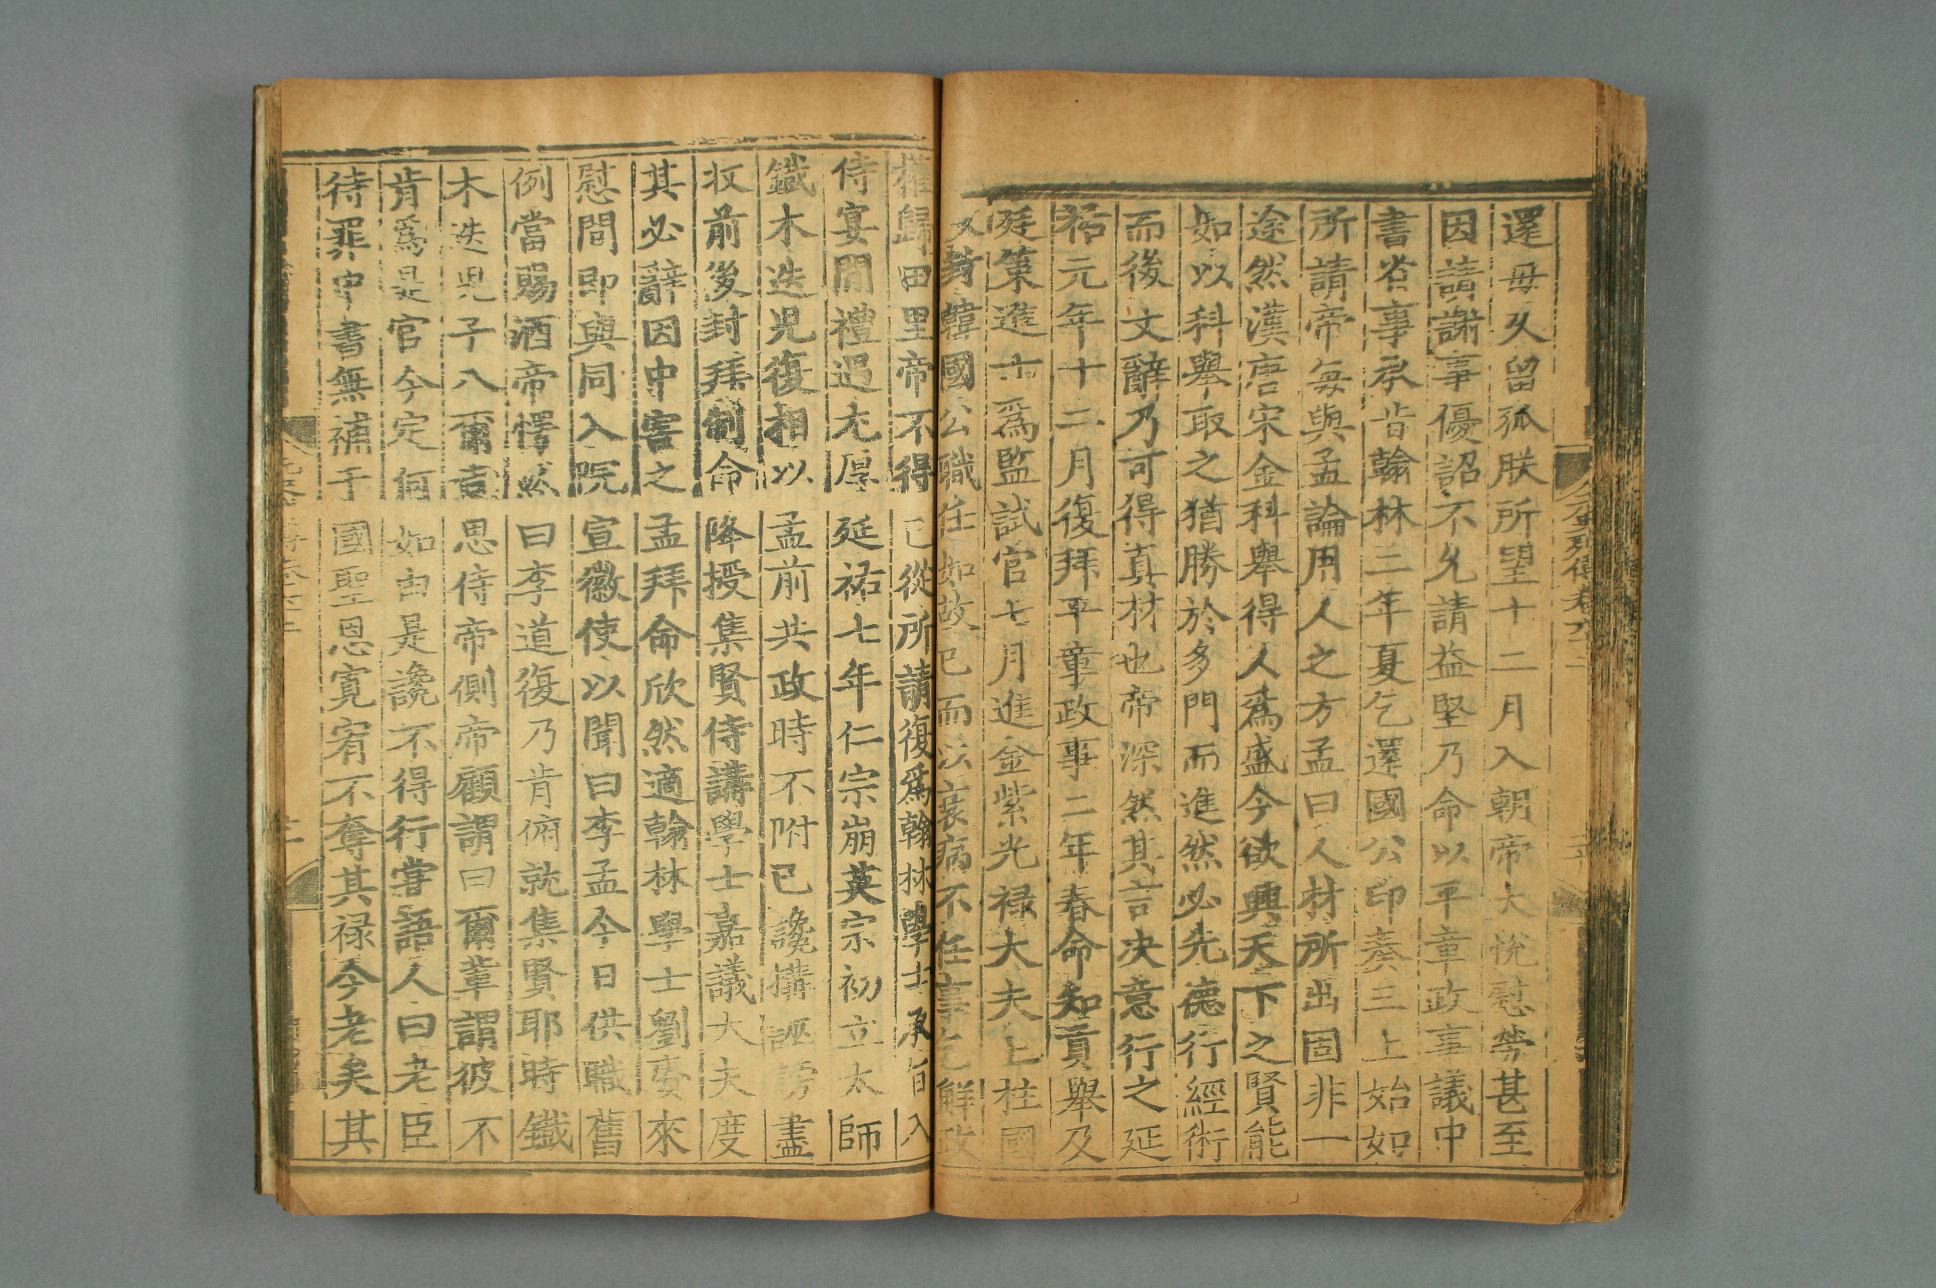 還毋久留孤朕所望十二月入朝帝大悅慰勞甚至
因請謝事優詔不允請益堅乃命以平章政事議中
書省事承旨翰林三年夏乞還國公印奏三上始如
所請帝每與孟論用人之方孟曰人材所出固非一
途然漢唐宋金科舉得人爲盛今欲興天下之賢能
如以科舉取之猶勝於多門而進然必先德行經術
而後文辭乃可得真材也帝深然其言决意行之延
祐元年十二月復拜平章政事二年春命知貢舉及
廷策進士爲監試官七月進金紫光禄大夫上柱國
攺封韓國公職任如故已而以衰病不任事乞解政
權歸田里帝不得已從所請復爲翰林學士承旨入
侍宴閒禮遇尤厚延祐七年仁宗崩英宗初立太師
鐵木迭兒復相以孟前共政時不附已讒搆誣謗盡
收前後封拜制命降授集賢侍講學士嘉議大夫度
其必辭因中害之孟拜命欣然適翰林學士劉賡來
慰問即與同入院宣徽使以聞曰李孟今日供職舊
例當賜酒帝愕然曰李道復乃肯俯就集賢耶時鐵
木迭兒子八爾吉思侍帝側帝顧謂曰爾輩謂彼不
肯爲是官今定何如由是讒不得行嘗語人曰老臣
待罪中書無補于國聖恩寛宥不奪其禄今老矣其
元史列傳卷六十二